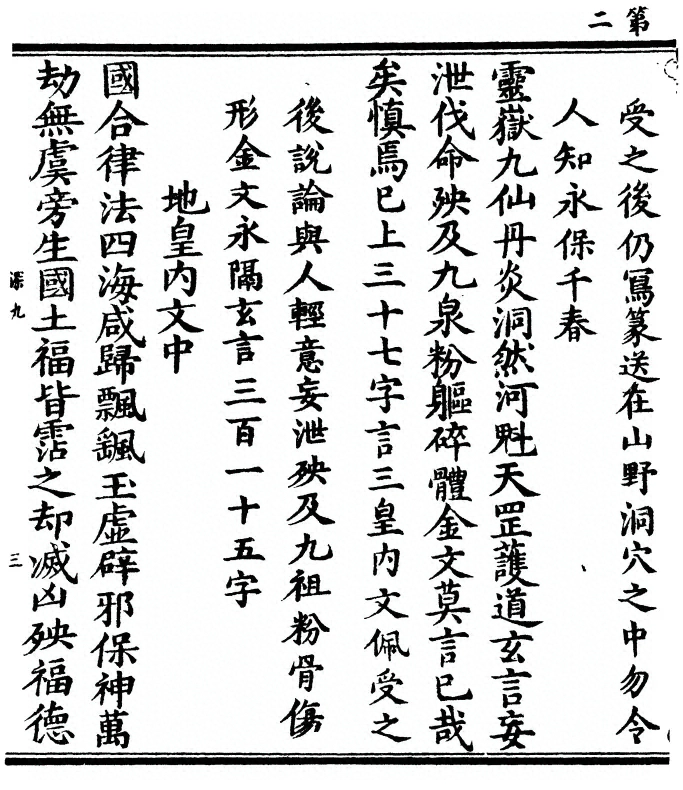 第二
受之後仍寫篆送在山野洞穴之中勿令
人知永保千春
靈嶽九仙丹炎洞然河魁天罡護道玄言妄
泄伐命殃及九泉粉軀碎體金文莫言已哉
矣慎焉巳上三十七字言三皇内文佩受之
後說論與人輕意妄泄殃及九祖粉骨傷
形金文永隔玄言三百一十五字
地皇内文中
國合律法四海咸歸飄颻玉虛辟邪保神萬
劫無虞旁生國土福皆霑之却滅凶殃福德
深九
三